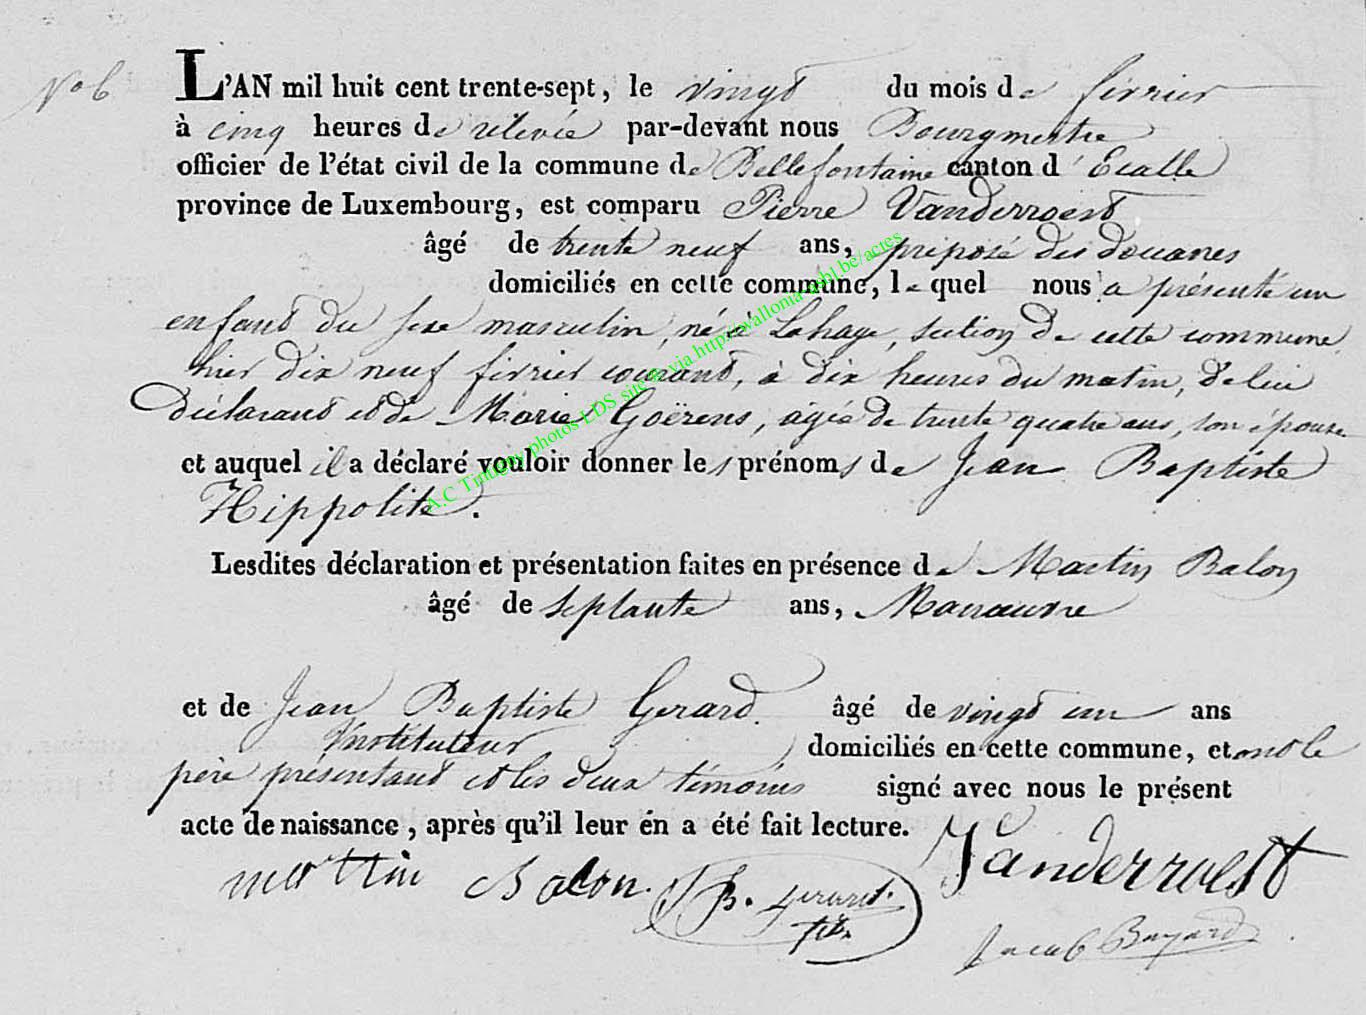 No 6
L'AN mil huit cent trente-sept, le vingt du mois de février
à cinq heures de relevée par-devant nous Bourgmestre
officier de l'état civil de la commune de Bellefontaine canton d'Etalle
province de Luxembourg, est comparu Pierre Vanderroest
âgé de trente neuf ans, préposé des douanes
domiciliés en cette commune, lequel nous a présenté un
enfant du sexe masculin, né à Lahage, section de cette commune
hier dix neuf février courant, à dix heures du matin, de lui
déclarant et de Marie Goërens, âgée de trente quatre ans, son épouse
et auquel il a déclaré vouloir donner les prénoms de Jean Baptiste
Hippolite.
Lesdites déclaration et présentation faites en présence de Martin Balon
âgé de septante ans, Manœuvre
et de Jean Baptiste Gerard âgé de vingt un ans
Instituteur, domiciliés en cette commune, et ont le
père présentant et les deux témoins signé avec nous le présent
acte de naissance, après qu'il leur en a été fait lecture.
Vanderroest
mertin Balon. JB. Gerard.
fils
Jacob Bayard.
A.C Tintigny photos LDS site & via http://wallonia-asbl.be/actes